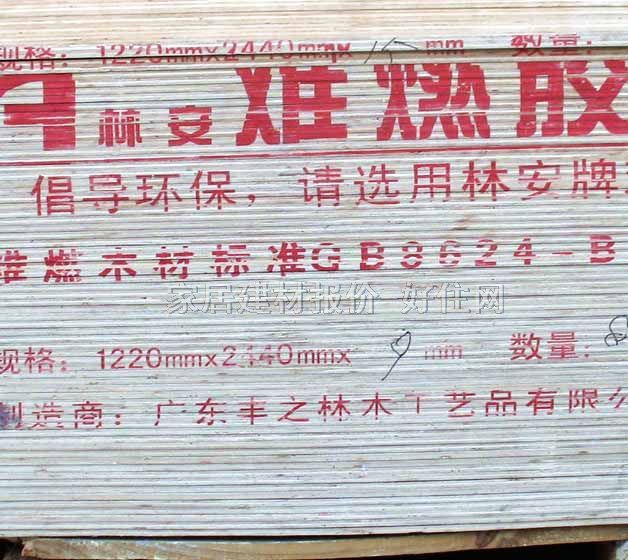 规格：1220mmx2440mmx15mm 数量：
林安 难燃胶
倡导环保，请选用林安牌
难燃木材标准GB8624-B
家居建材报价 好住网
规格：1220mmx2440mmx9mm 数量：
制造商：广东丰之林木工艺品有限公